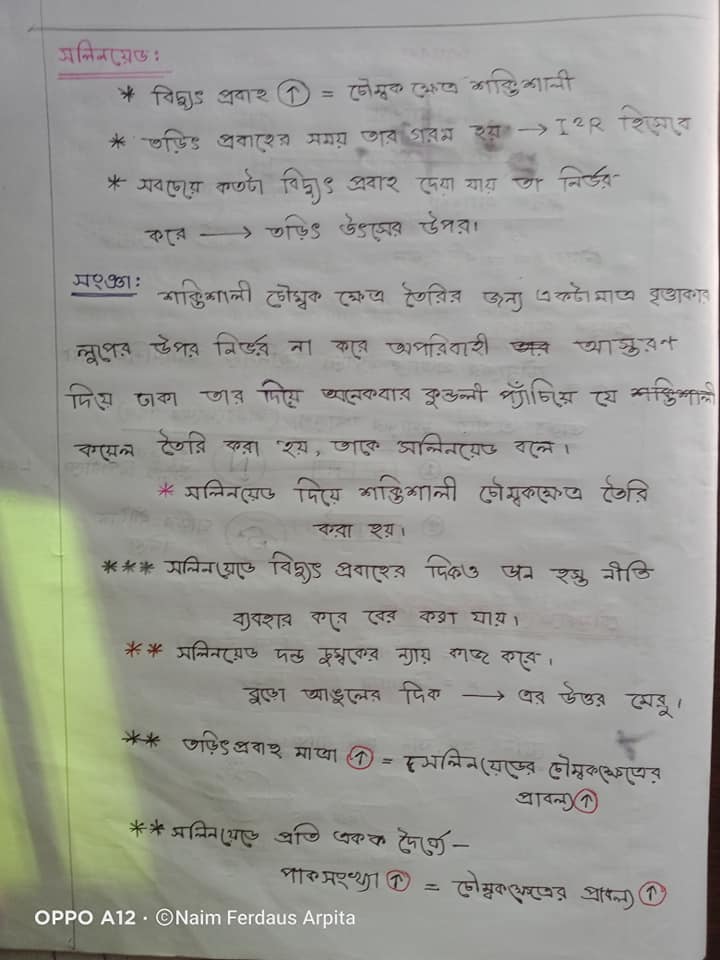 সলিনয়েড:
* বিদ্যুৎ প্রবাহ ↑ = চৌম্বক ক্ষেত্র শক্তিশালী
* তড়িৎ প্রবাহের সময় তার গরম হয় → I2R হিসেবে
* সবচেয়ে কতটা বিদ্যুৎ প্রবাহ দেয়া যায় তা নির্ভর
করে → তড়িৎ উৎসের উপর।
সংজ্ঞা: শক্তিশালী চৌম্বক ক্ষেত্র তৈরির জন্য একটামাত্র বৃত্তাকার
লুপের উপর নির্ভর না করে অপরিবাহী আস্তরণ
দিয়ে ঢাকা তার দিয়ে অনেকবার কুন্ডলী প্যাঁচিয়ে যে শক্তিশালী
কয়েল তৈরি করা হয়, তাকে সলিনয়েড বলে।
* সলিনয়েড দিয়ে শক্তিশালী চৌম্বকক্ষেত্র তৈরি
করা হয়।
*** সলিনয়েডে বিদ্যুৎ প্রবাহের দিকও ডান হস্ত নীতি
ব্যবহার করে বের করা যায়।
** সলিনয়েড দন্ড চুম্বকের ন্যায় কাজ করে।
বুড়ো আঙুলের দিক → এর উত্তর মেরু।
** তড়িৎপ্রবাহ মাত্রা ↑ = সলিনয়েডের চৌম্বকক্ষেত্রের
প্রাবল্য ↑
** সলিনয়েডে প্রতি একক দৈর্ঘ্যে –
পাকসংখ্যা ↑ = চৌম্বকক্ষেত্রের প্রাবল্য ↑
OPPO A12 · ©Naim Ferdaus Arpita